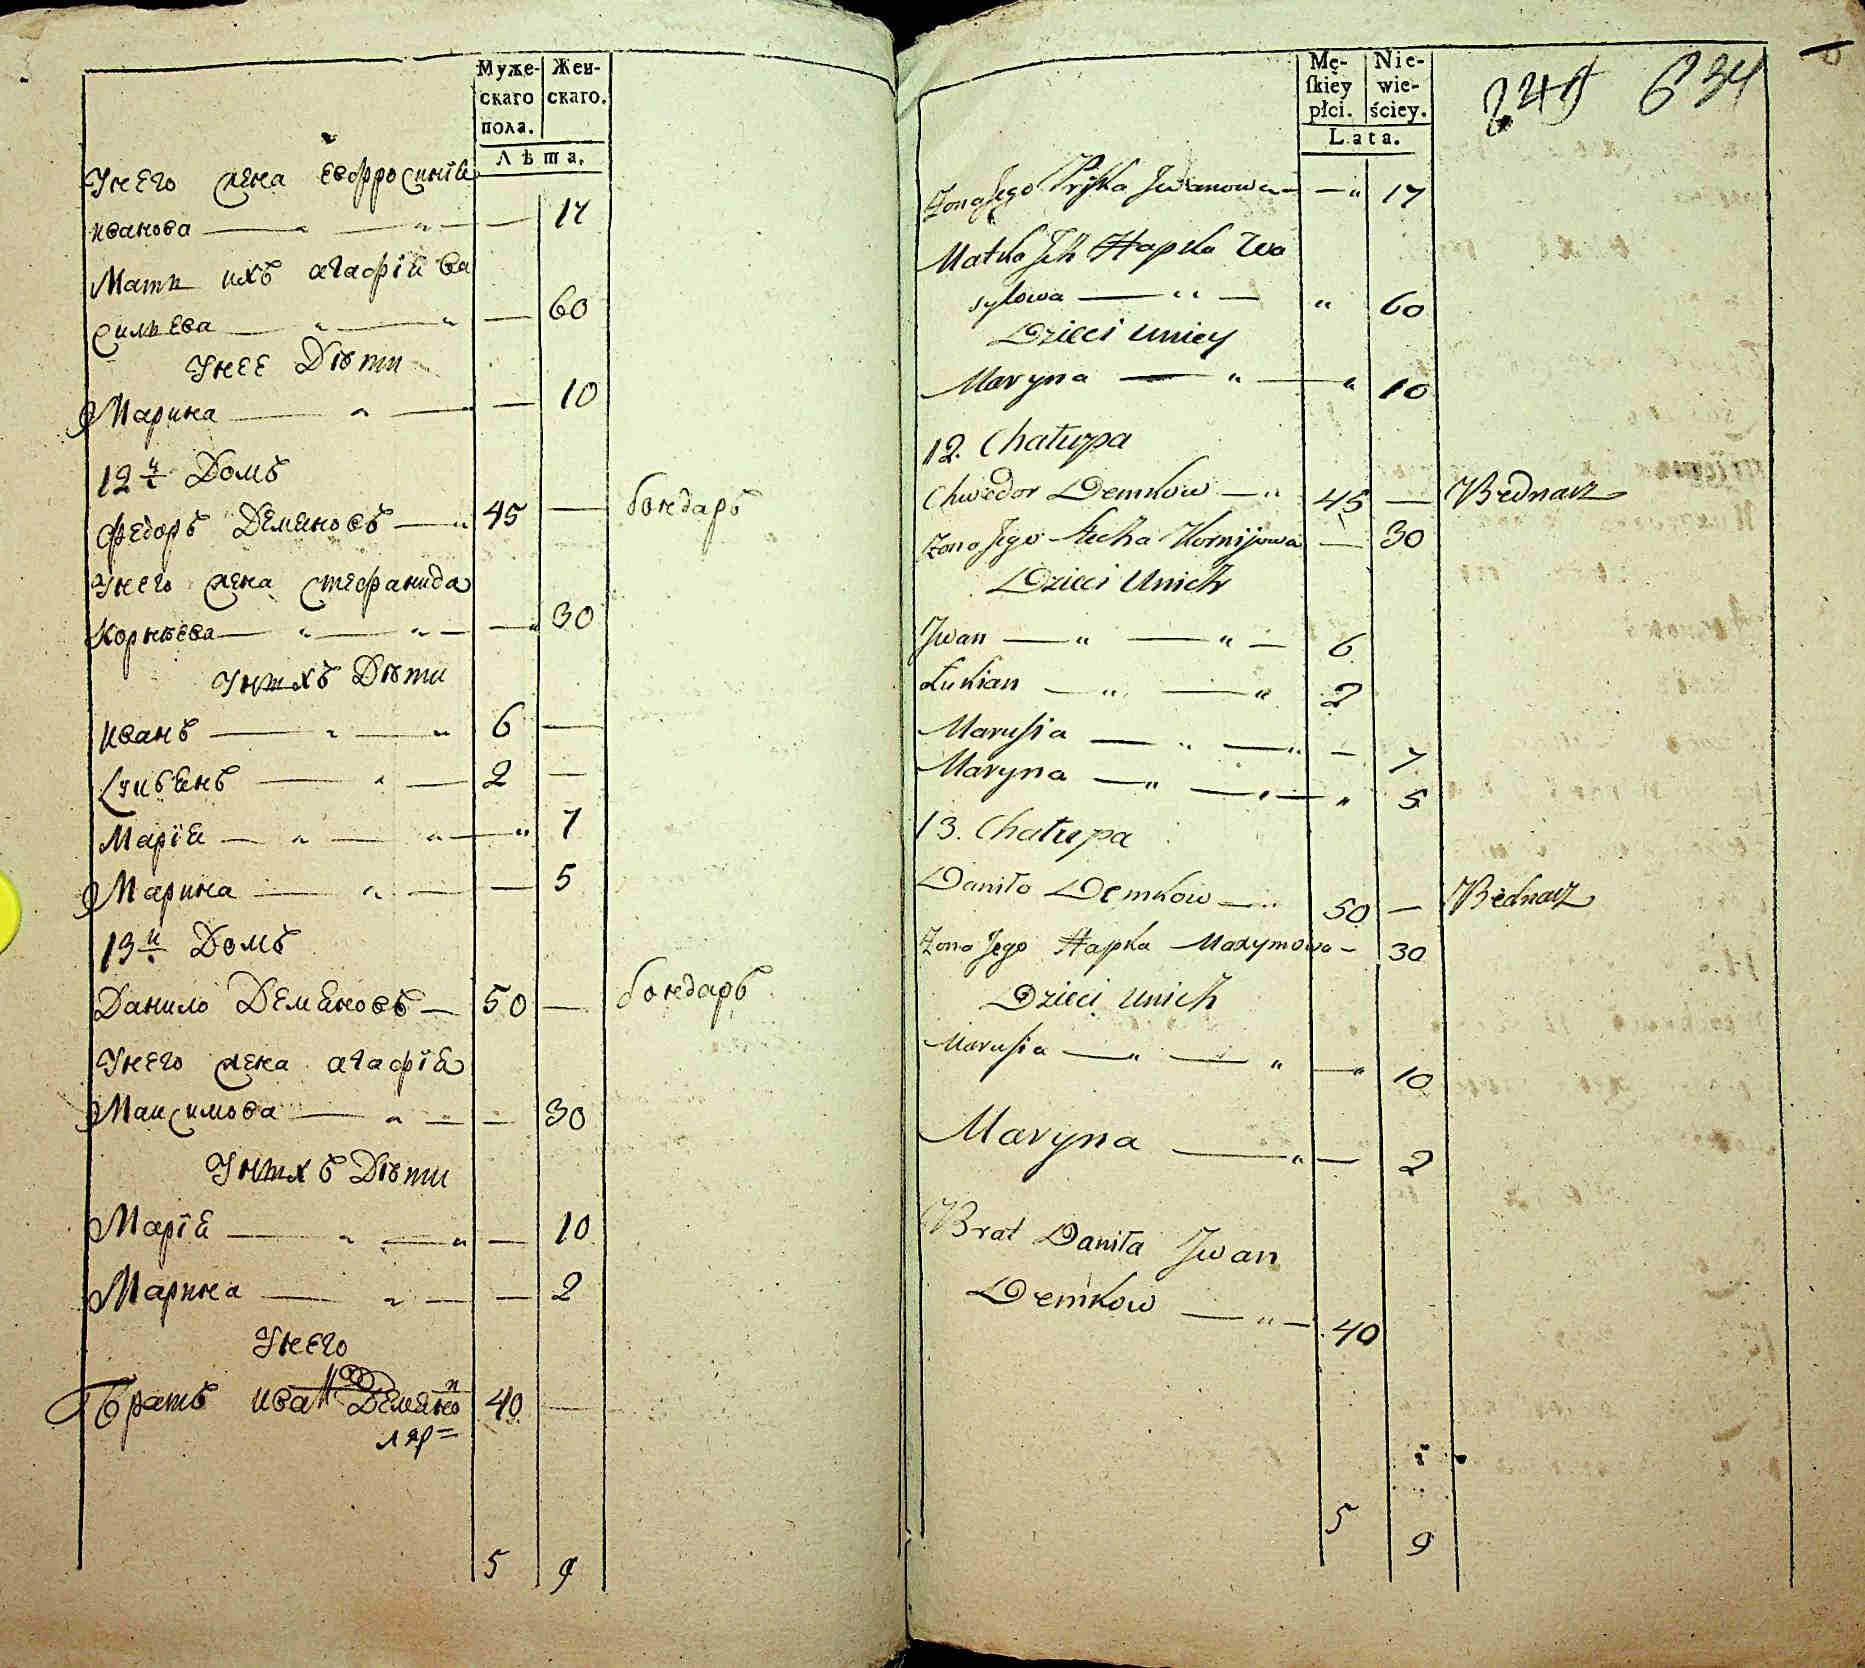 Муже-
скаго
пола.
Жен-
скаго.
Лѣта.
У него жена Евфросиніа
Иванова 17
Мать ихъ Агафіа Ва
силиева 60
У нее Дѣти
Марина 10
12й Домъ
Федоръ Демяновъ 45 бондаръ
У него жена Стефанида
Корнѣева 30
У нихъ Дѣти
Иванъ 6
2
Маріа 7
Марина 5
13й Домъ
Данило Демяновъ 50 бондаръ
У него жена Агафіа
Максимова 30
У нихъ Дѣти
Маріа 10
Марина 2
У него
Братъ Иван Демяно 40
5 9
Mę-
skiey
płci.
Nie-
wie-
ściey.
Lata.
245 634
Żona Jego Pryska Jwanowa 17
Matka Jch Hapka Wa
sylowa 60
Dzieci u niey
Maryna 10
12. Chałupa
Chwedor Demkow 45 Bednarz
Żona Jego Kornijowa 30
Dzieci u nich
Jwan 6
Łukian 2
Marusia 7
Maryna 5
13. Chałupa
Daniło Demkow 50 Bednarz
Żona Jego Hapka Maxymowa 30
Dzieci u nich
Marusia 10
Maryna 2
Brat Daniła Jwan
Demkow 40
5 9